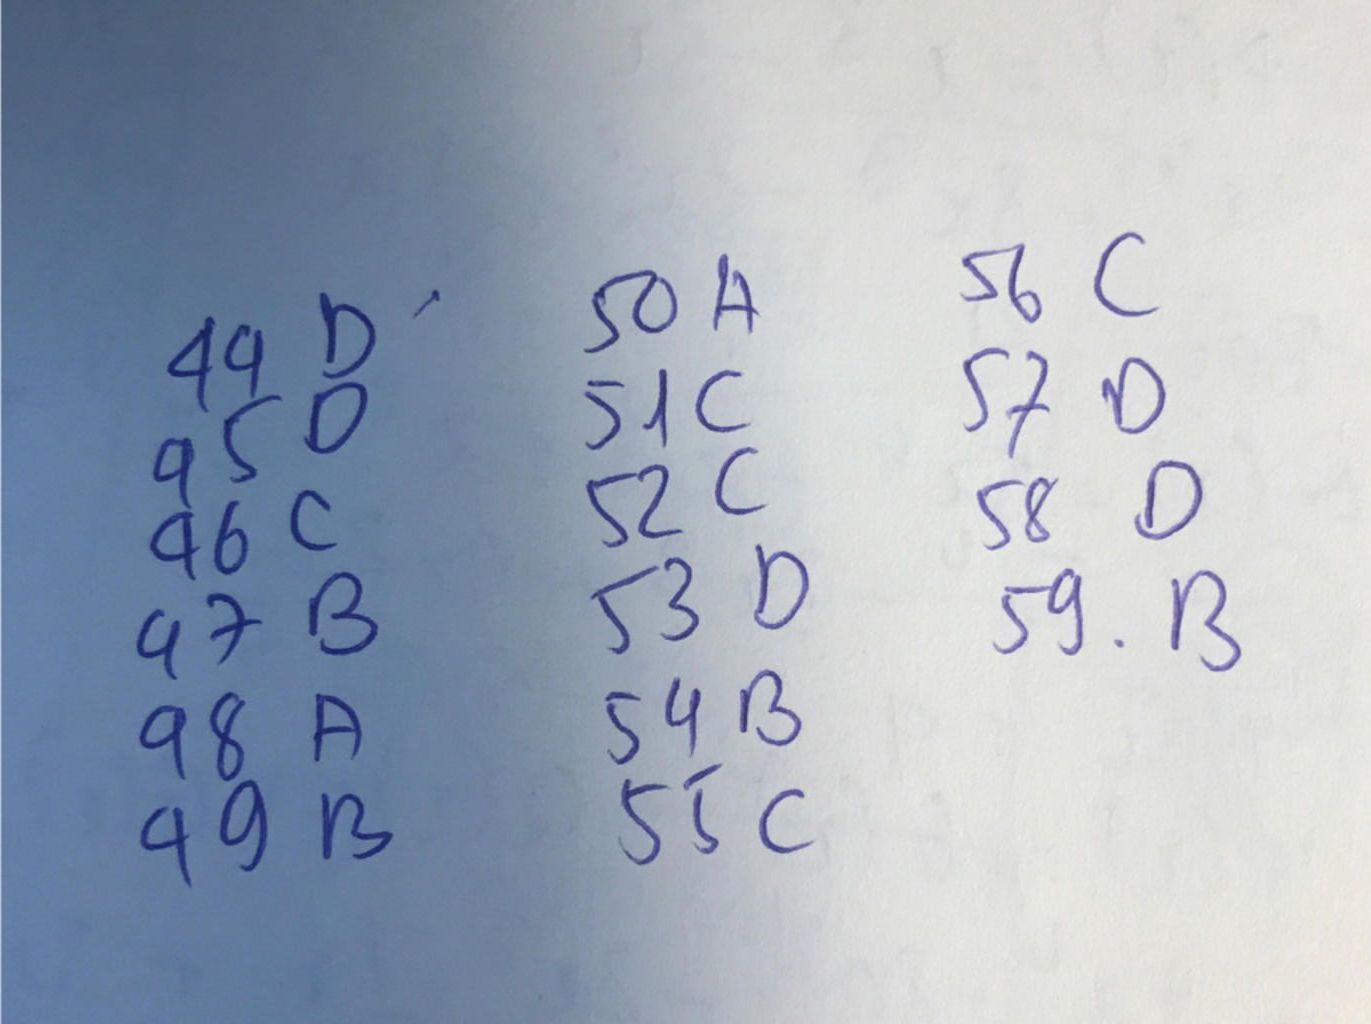 44 D
45 D
46 C
47 B
48 A
49 B
50 A
51 C
52 C
53 D
54 B
55 C
56 C
57 D
58 D
59. B